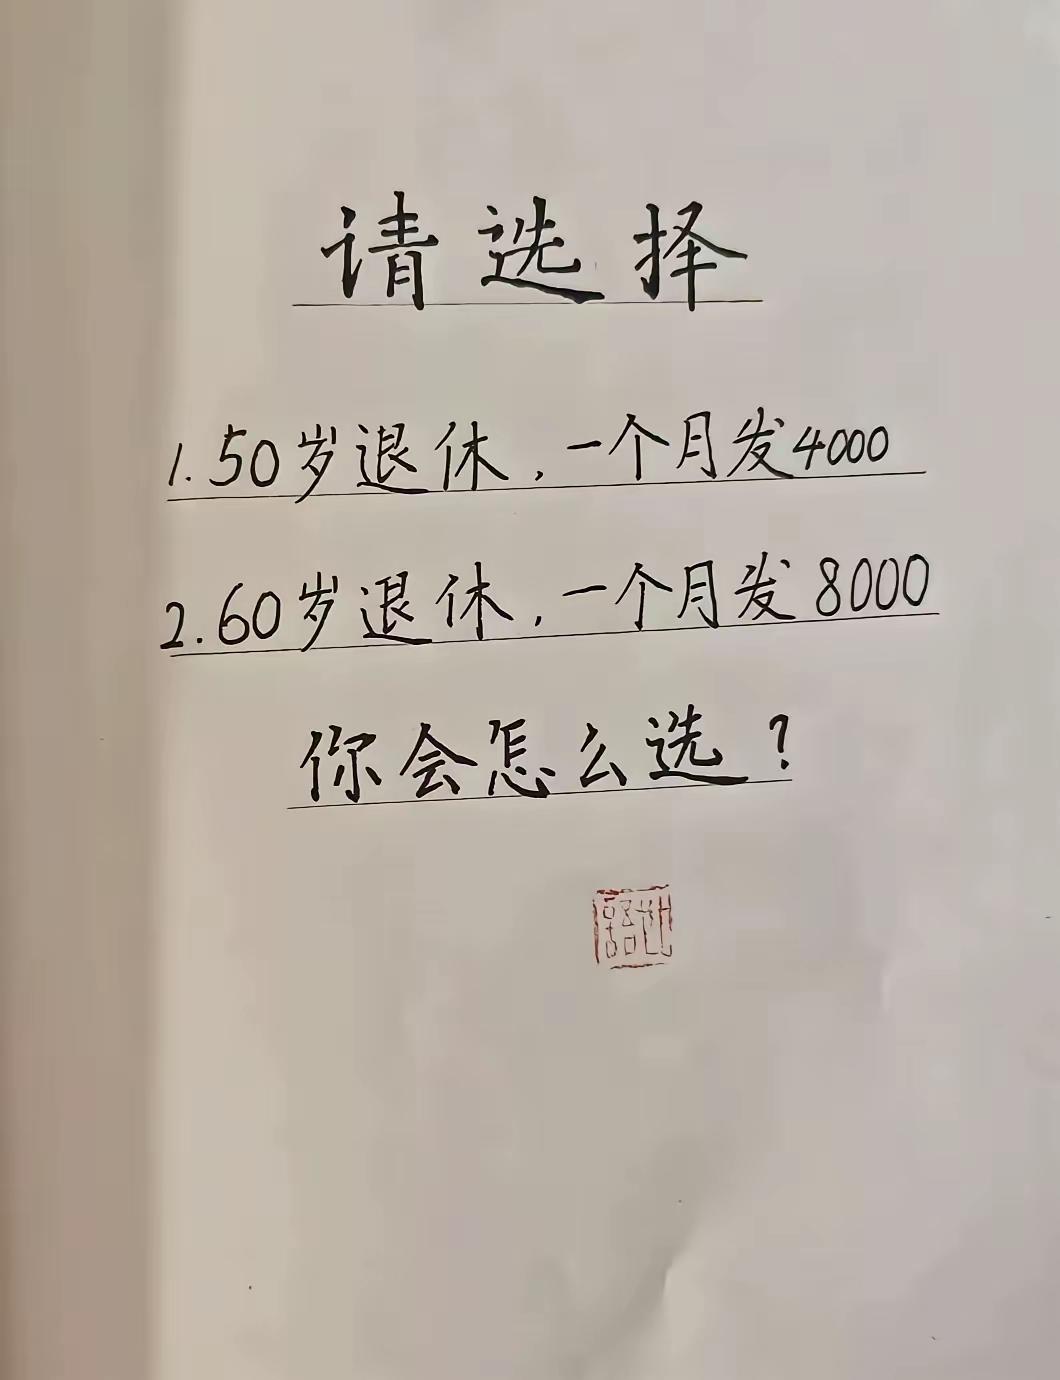 请选择
1.50岁退休，一个月发4000
2.60岁退休，一个月发8000
你会怎么选？